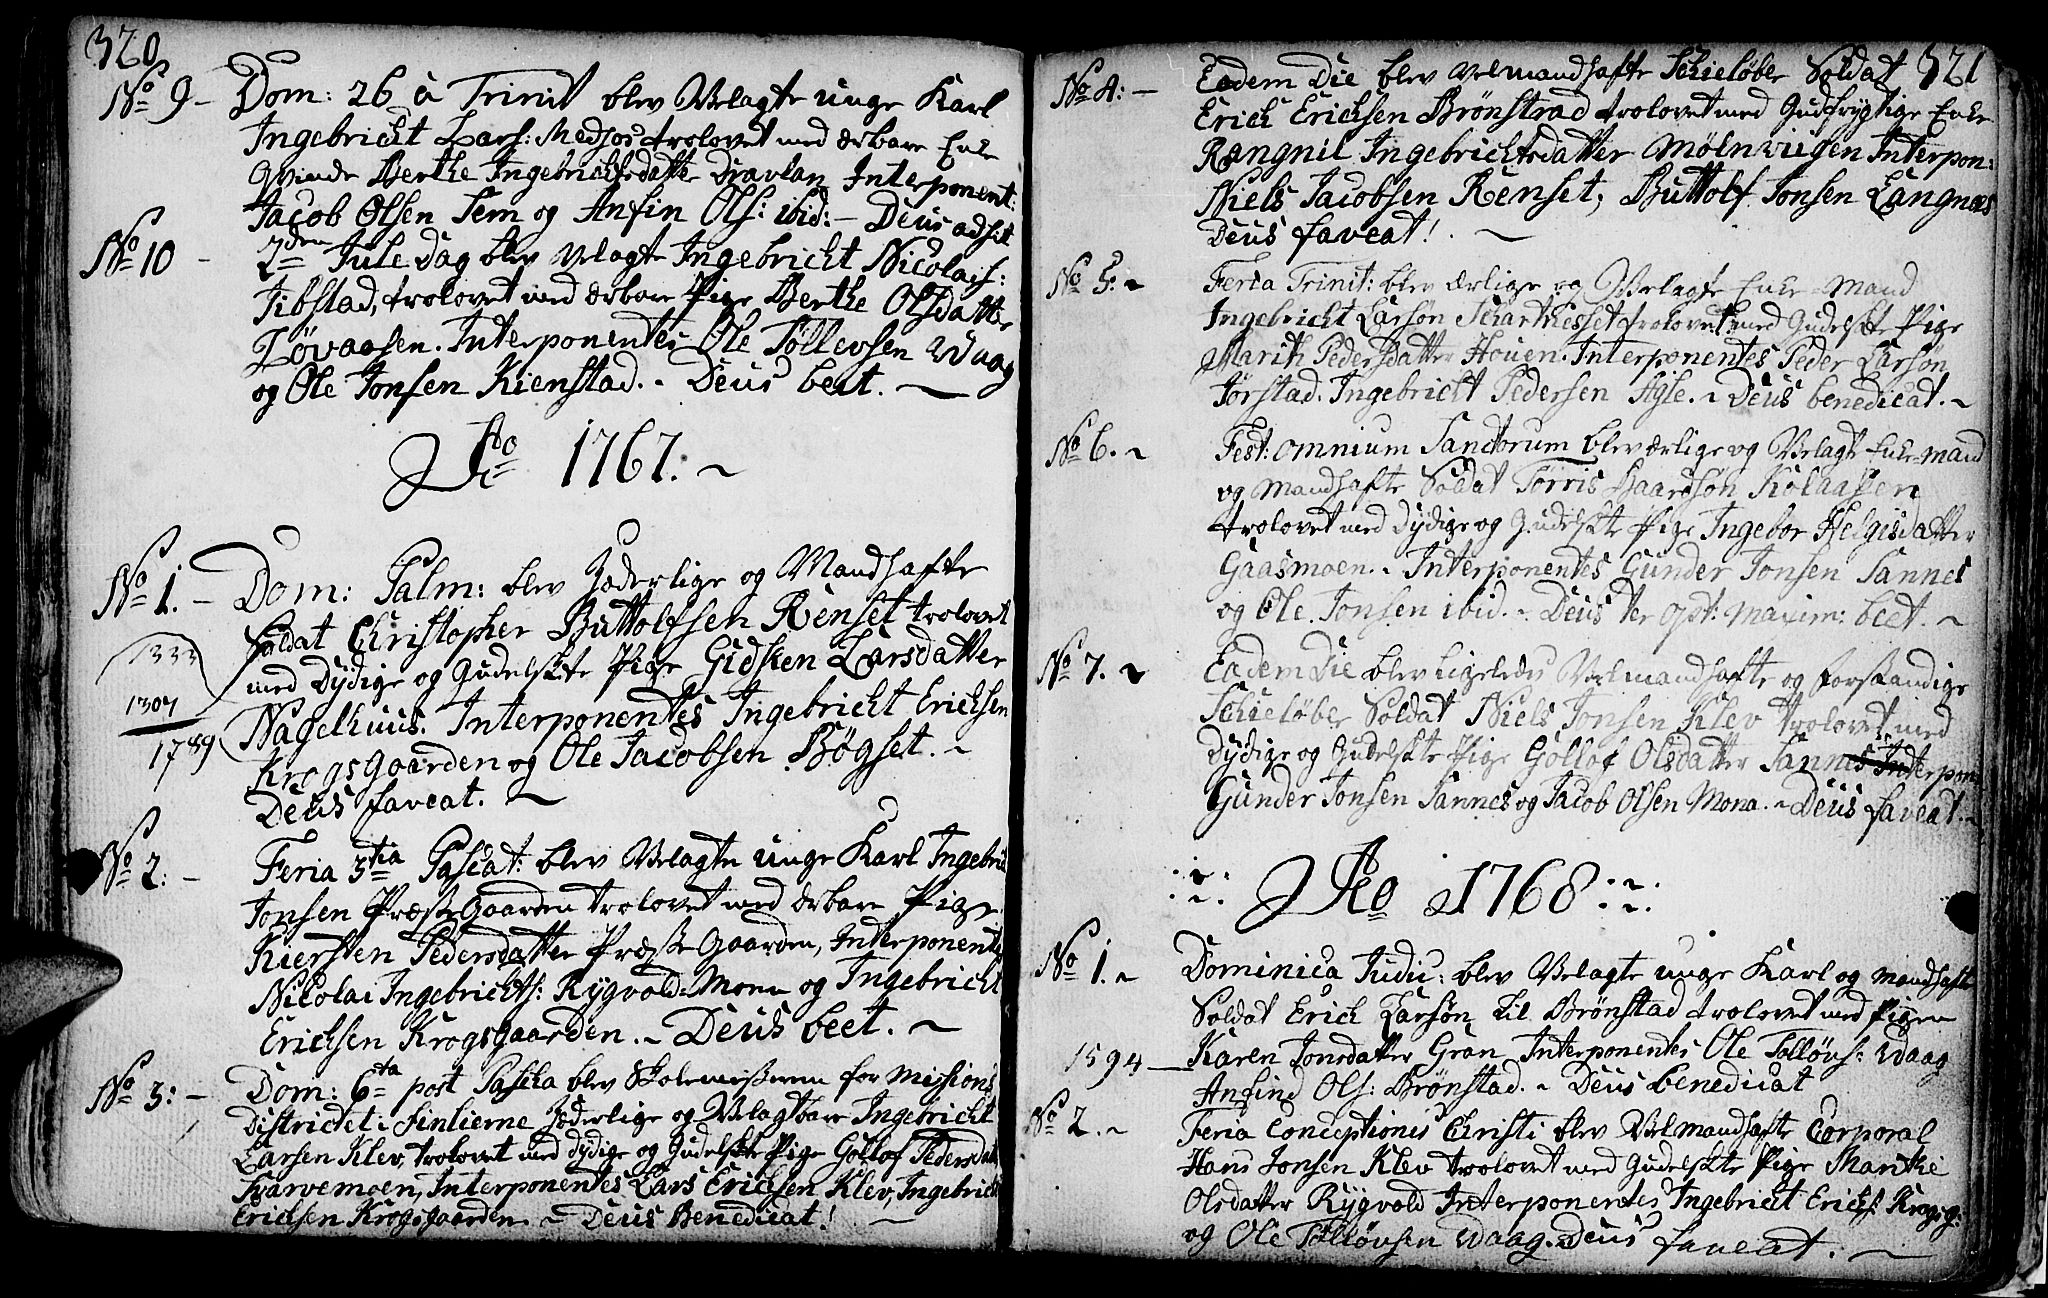 320
No 9 - Dom: 26 á Trinit blev Velagte unge Karl
Ingebricht Lars: Medjos trolovet med ærbare Enke
Qvinde Berthe Ingebrichtsdatter Dravlan Interponent:
Jacob Olsen Sem og Anfin Ols: ibid: - Deus adsit
No 10 - 2den Jule Dag blev Velagte Ingebricht Nicolais:
Tibstad, trolovet med ærbare Pige Berthe Olsdatter
Løvaasen. Interponentes Ole Tollevsen Waag
og Ole Jonsen Kienstad. Deus beet.
Ao 1767.
No 1. - Dom: Palm: blev Hæderlige og Mandhafte
Soldat Christopher Buttolfsen Renset trolovet
med Dydige og Gudelskte Pige Gidsken Larsdatter
Nagelhuus. Interponentes Ingebricht Erichsen
KrogsGaarden og Ole Jacobsen Bøgset.
Deus faveat.
1333
1307
1789
No 2: - Feria 3tia Pascat: blev Velagte unge Karl Ingebrict
Jonsen PræsteGaarden trolovet med ærbare Pige
Kiersten Pedersdatter PræsteGaarden, Interponentes
Nicolai Ingebrichts: Rygvold-Moen og Ingebricht
Erichsen Krogsgaarden. Deus beet.
No 3: - Dom: 6ta post Pascha blev Skolemesteren for Missions
Districtet i Finlierne Hæderlige og Velagtbare Ingebricht
Larsen Klev, trolovet med Dydige og Gudelskte Pige Gollof Pedersdat
Kvarvemoen, Interponentes Lars Erichsen Klev, Ingebricht
Erichsen Krogsgaarden. Deus Benedicat!
321
No 4: - Eadem Die blev Velmandhafte Schieløber Soldat
Erich Erichsen Brønstad trolovet med Gudfrygtige Enke
Rangnil Ingebrichtsdatter Mølnviigen Interpon:
Niels Jacobsen Renset, Buttolf Jonsen Langnæs
Deus faveat!
No 5. Feria Trinit: blev ærlige og Velagte Enke-Mand
Ingebricht Larsøn Skartnesset trolovet med Gudelskte Pige
Marith Pedersdatter Houen. Interponentes Peder Larsøn
Jørstad. Ingebricht Pedersen Agle. Deus benedicat.
No 6. Fest: Omnium Sanctorum blev ærlige og Velagte Enke-Mand
og Mandhafte Soldat Torris Haardsøn Kolaasen
trolovet med Dydige og Gudelskte Pige Ingebor Helgisdatter
Gaasmoen. Interponentes Gunder Jonsen Sannes
og Ole Jonsen ibid. Deus ter opt: maxim: beet.
No 7. Eadem Die blev ligeledes Velmandhafte og forstandige
Schieløber Soldat Niels Jonsen Klev trolovet med
Dydige og Gudelskte Pige Gollof Olsdatter Sannes Interpon
Gunder Jonsen Sannes og Jacob Olsen Mona. Deus faveat.
Ao 1768
No 1. Dominica Judic: blev Velagte unge Karl og mandhafte
Soldat Erich Larsøn Lil Brønstad trolovet med Pigen
1594 Karen Jonsdatter Gran Interponentes Ole Tolløvs: Waag
Anfind Ols: Brønstad. Deus benedicat
No 2. Feria Conceptiones Christi blev Velmandhafte Corporal
Hans Jonsen Klev trolovet med Gudelskte Pige Marithe
Olsdatter Rygvold Interponentes Ingebricht Erichs: Krogsg:
og Ole Tolløvsen Waag. Deus faveat.